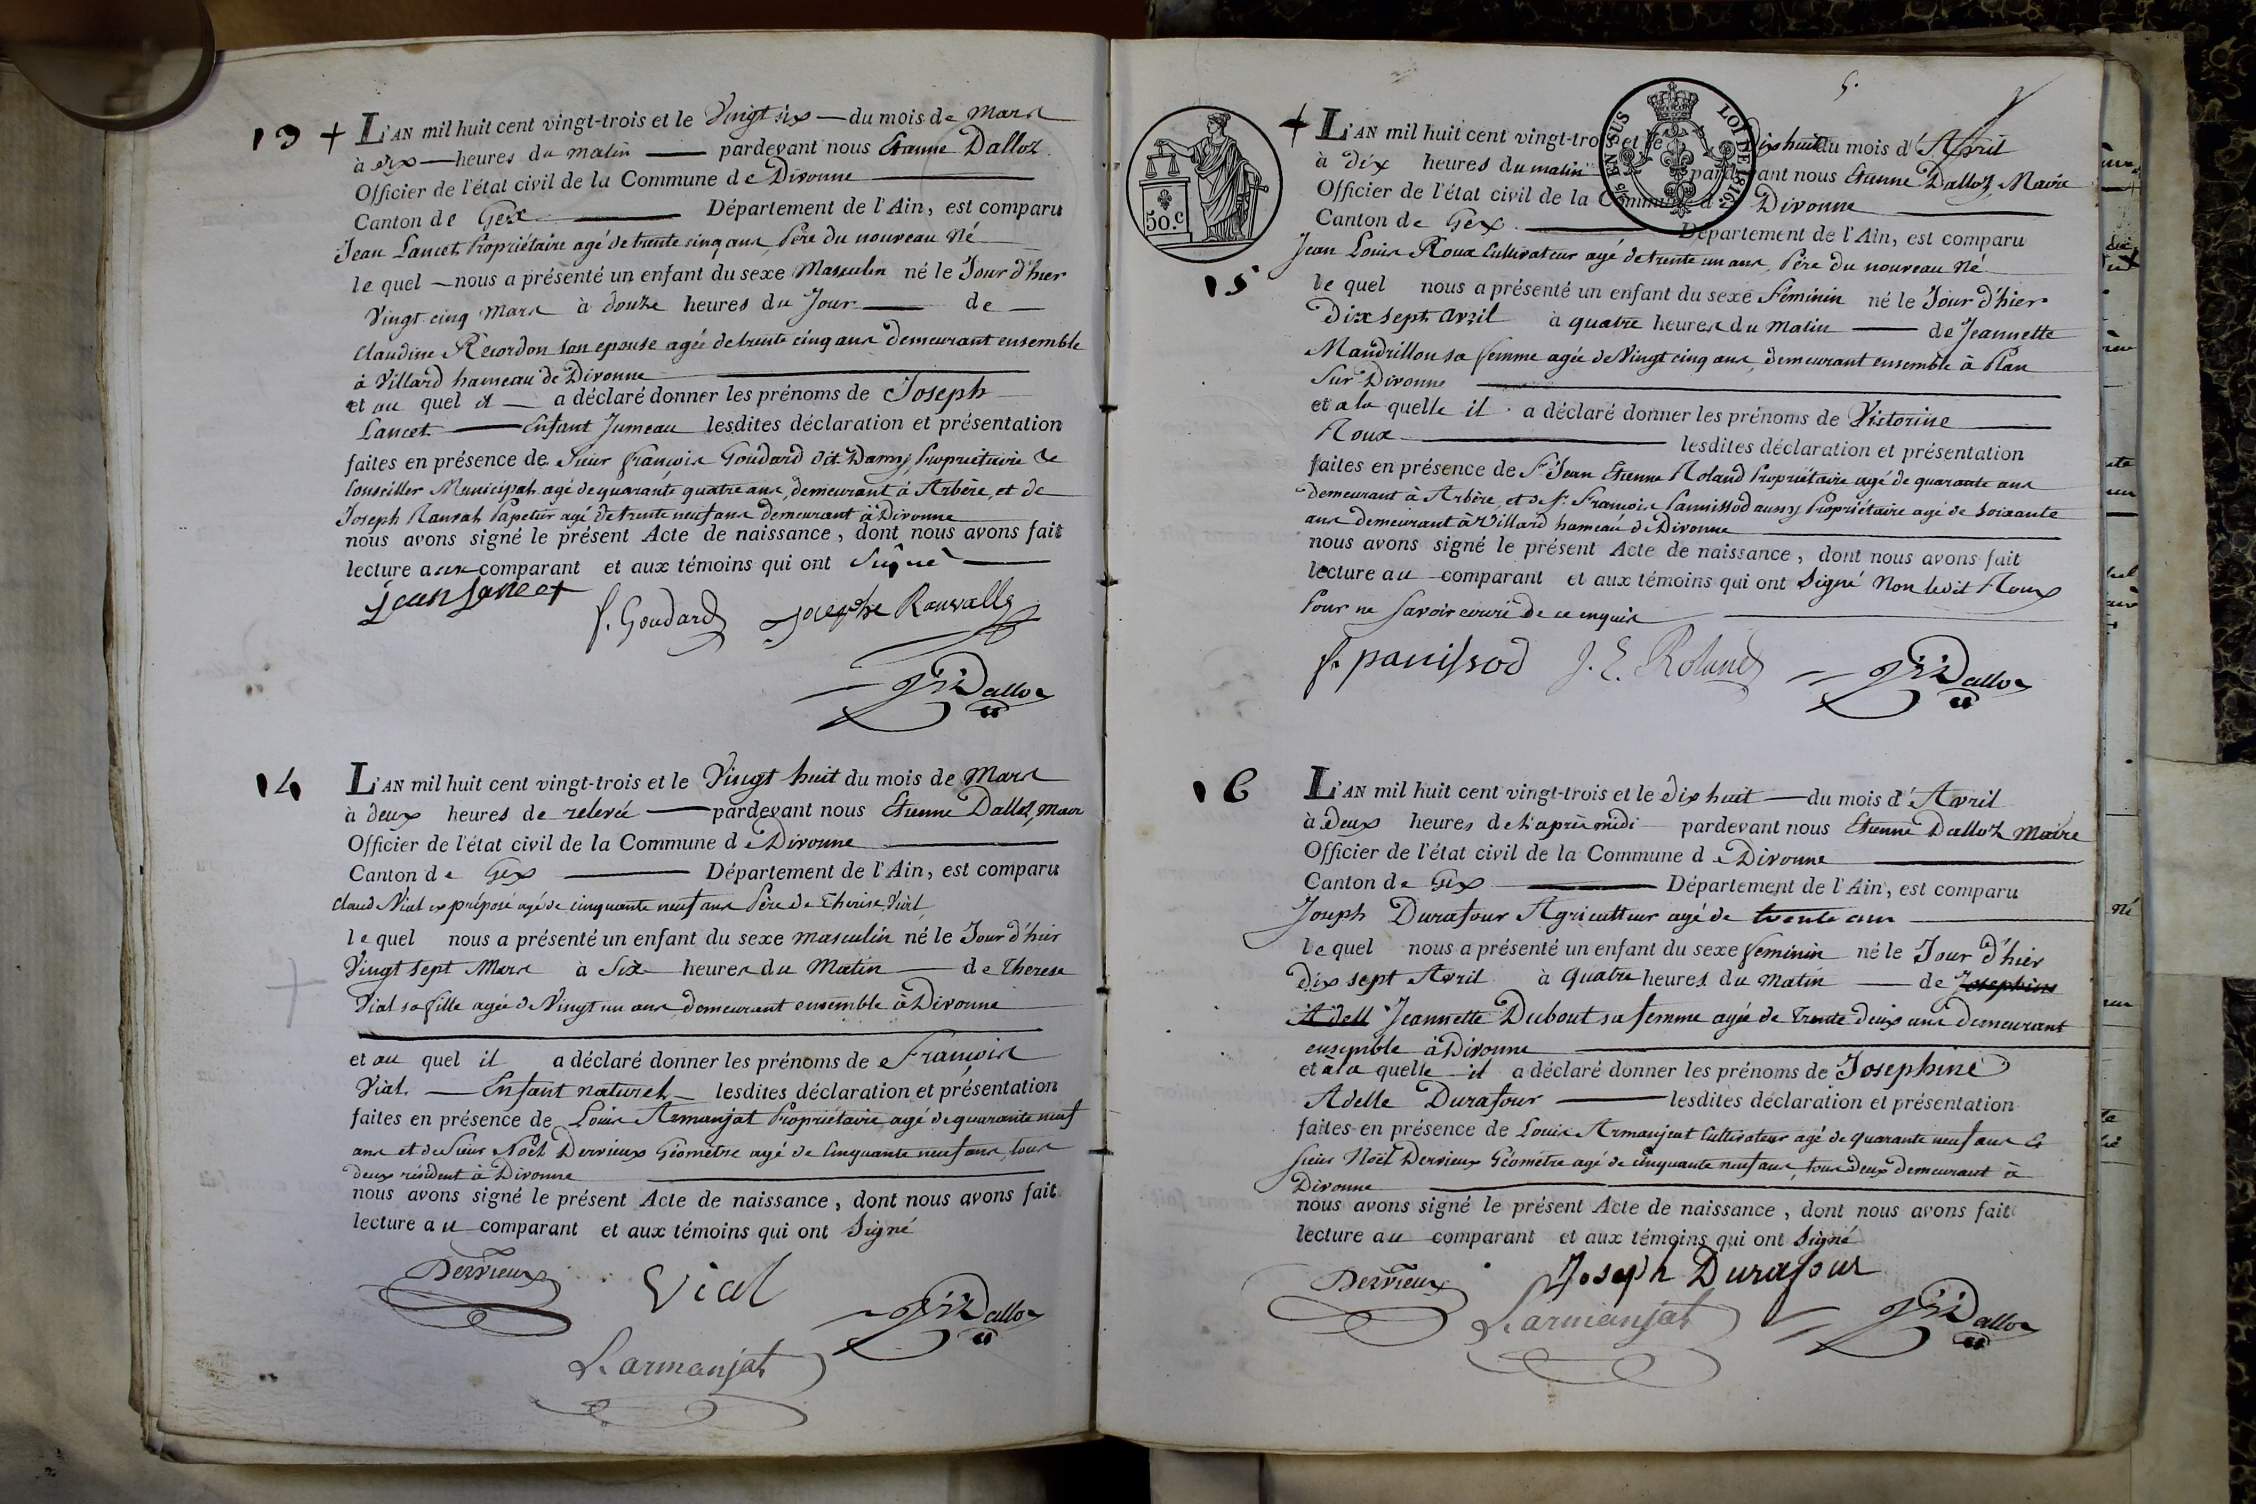 13 + L'AN mil huit cent vingt-trois et le Vingt six — du mois de Mars
à dix — heures du matin — pardevant nous Etienne Dalloz
Officier de l'état civil de la Commune de Divonne
Canton de Gex — Département de l'Ain, est comparu
Jean Lancet Propriétaire agé de trente cinq ans, Père du nouveau Né
le quel — nous a présenté un enfant du sexe Masculin né le Jour d'hier
Vingt cinq Mars à douze heures du Jour — de —
Claudine Récordon son epouse agée de trente cinq ans demeurant ensemble
à Villard hameau de Divonne
et au quel il — a déclaré donner les prénoms de Joseph
Lancet — Enfant Jumeau lesdites déclaration et présentation
faites en présence de Sieur François Goudard dit Damy Propriétaire &
Conseiller Municipal agé de quarante quatre ans, demeurant à Arbère, et de
Joseph Rauvah Papetier agé de trente neuf ans demeurant à Divonne
nous avons signé le présent Acte de naissance, dont nous avons fait
lecture aux comparant et aux témoins qui ont Signé
jean Lancet
f. Goudard
Josephe Rauvalle
Dalloz
14
L'AN mil huit cent vingt-trois et le Vingt huit du mois de Mars
à deux heures de relevée — pardevant nous Etienne Dalloz, Maire
Officier de l'état civil de la Commune de Divonne
Canton de Gex — Département de l'Ain, est comparu
Claude Vial ex préposé agé de cinquante neuf ans Père de Therise Vial
le quel nous a présenté un enfant du sexe masculin né le Jour d'hier
Vingt sept Mars à Six heures du Matin — de Therese
Vial sa fille agée de Vingt un ans demeurant ensemble à Divonne
et au quel il a déclaré donner les prénoms de François
Vial — Enfant naturel — lesdites déclaration et présentation
faites en présence de Louis Armanjat Propriétaire agé de quarante neuf
ans et de Sieur Noël Dervieux Géomètre agé de Cinquante neuf ans, tous
deux résident à Divonne
nous avons signé le présent Acte de naissance, dont nous avons fait
lecture au comparant et aux témoins qui ont Signé
Dervieux
Vial
Dalloz
L. armanjat
5.
50.c
EN SUS
LOI DE 1816
+ L'AN mil huit cent vingt-trois et le Dix huit du mois d'Avril
à Dix heures du matin pardevant nous Etienne Dalloz, Maire
Officier de l'état civil de la Commune de Divonne
Canton de Gex — Département de l'Ain, est comparu
Jean Louis Roux Cultivateur agé de trente un ans, Père du nouveau Né
15
le quel nous a présenté un enfant du sexe Féminin né le Jour d'hier
Dix sept avril à quatre heures du matin — de Jeannette
Mandrillon sa femme agée de Vingt cinq ans, demeurant ensemble à Plan
Sur Divonne
et a la quelle il a déclaré donner les prénoms de Victorine
Roux — lesdites déclaration et présentation
faites en présence de Sr. Jean Etienne Roland Propriétaire agé de quarante ans
demeurant à Arbère, et de Sr. François Pannissod aussy Propriétaire agé de soixante
ans demeurant à Villard hameau de Divonne
nous avons signé le présent Acte de naissance, dont nous avons fait
lecture au comparant et aux témoins qui ont Signé Non ledit Roux
Pour ne Savoir écrire de ce enquis
f. panissod
J. E. Roland
Dalloz
16
L'AN mil huit cent vingt-trois et le dix huit — du mois d'Avril
à Deux heures de l'après midi pardevant nous Etienne Dalloz Maire
Officier de l'état civil de la Commune de Divonne
Canton de Gex — Département de l'Ain, est comparu
Joseph Durafour Agriculteur agé de trente ans
le quel nous a présenté un enfant du sexe feminin né le Jour d'hier
Dix sept Avril à Quatre heures du Matin — de Josephine
Adell Jeannette Dubout sa femme agée de Trente deux ans demeurant
ensemble à Divonne
et à la quelle il a déclaré donner les prénoms de Josephine
Adelle Durafour — lesdites déclaration et présentation
faites en présence de Louis Armanjeat Cultivateur agé de quarante neuf ans &
Sieur Noël Dervieux Géomètre agé de cinquante neuf ans, tous deux demeurant à
Divonne
nous avons signé le présent Acte de naissance, dont nous avons fait
lecture au comparant et aux témoins qui ont Signé
Dervieux
Joseph Durafour
L. armanjat
Dalloz